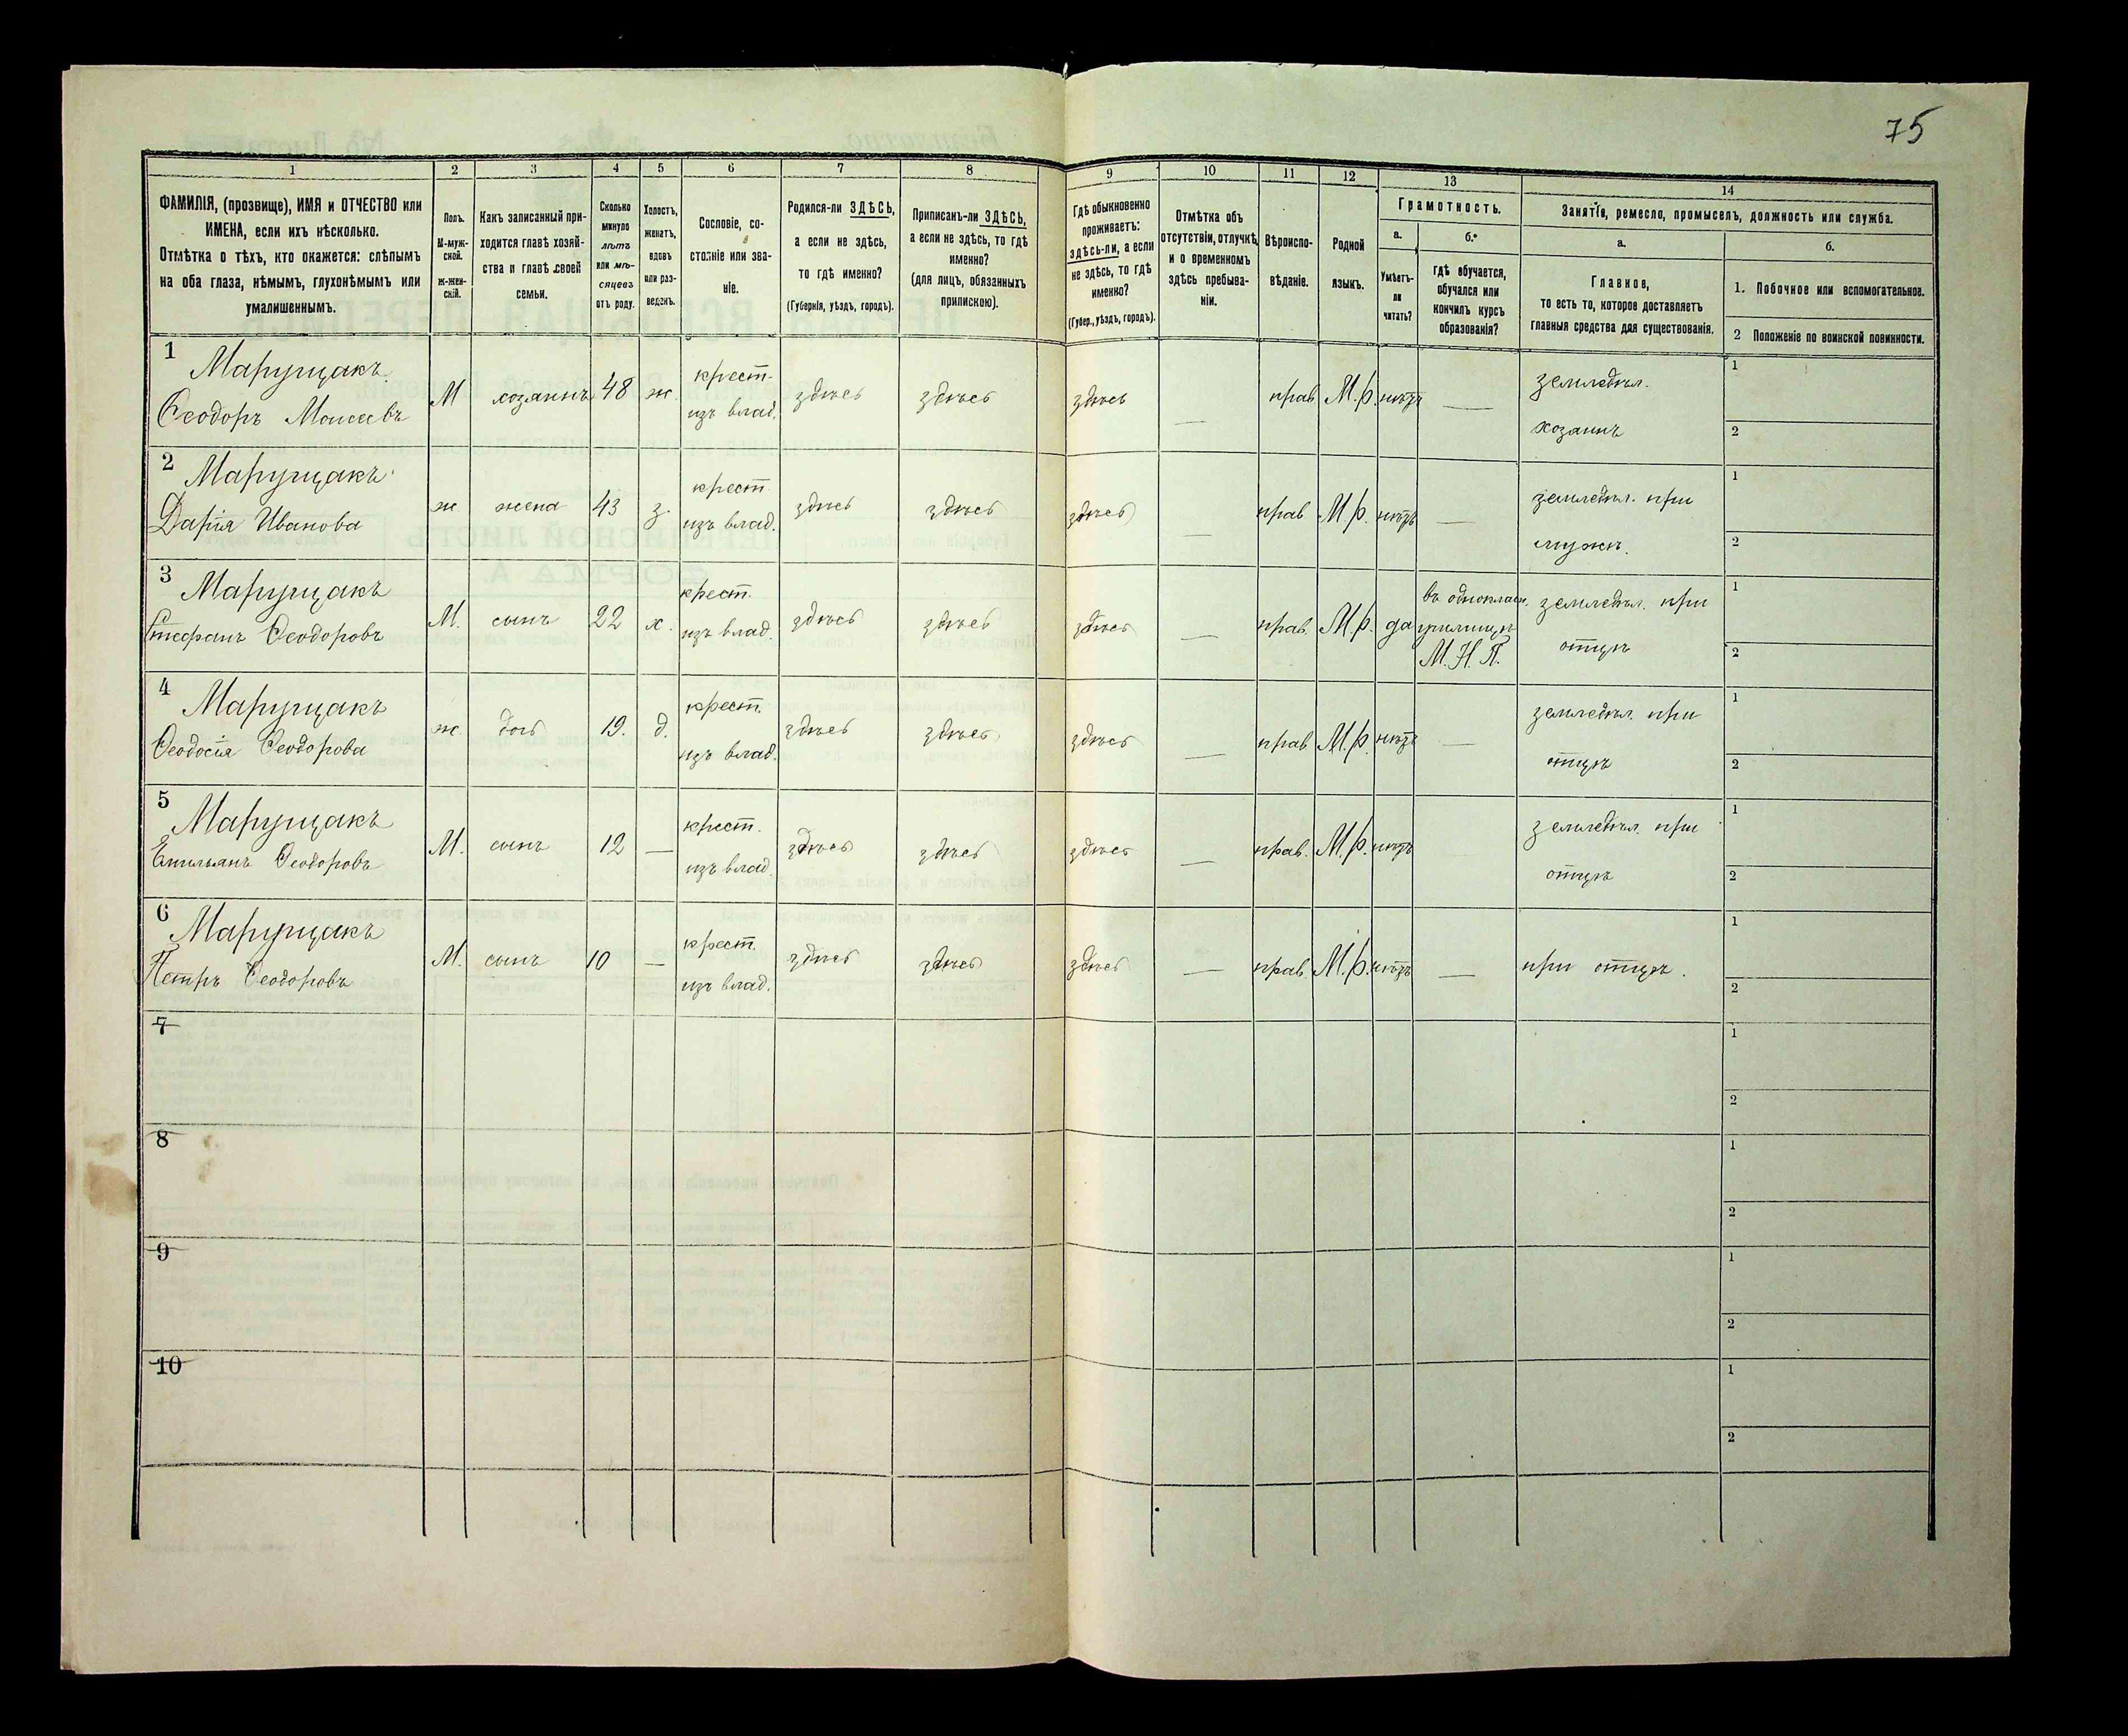 75
1 2 3 4 5 6 7 8 9 10 11 12 13 14
ФАМИЛІЯ, (прозвище), ИМЯ и ОТЧЕСТВО или
ИМЕНА, если ихъ нѣсколько.
Отмѣтка о тѣхъ, кто окажется: слѣпымъ
на оба глаза, нѣмымъ, глухонѣмымъ или
умалишеннымъ.
Полъ.
М-муж-
ской.
Ж-жен-
скій.
Какъ записанный при-
ходится главѣ хозяй-
ства и главѣ своей
семьи.
Сколько
минуло
лѣтъ
или мѣ-
сяцевъ
отъ роду.
Холостъ,
женатъ,
вдовъ
или раз-
веденъ.
Сословіе, со-
стояніе или зва-
ніе.
Родился-ли ЗДѢСЬ,
а если не здѣсь,
то гдѣ именно?
(Губернія, уѣздъ, городъ).
Приписанъ-ли ЗДѢСЬ,
а если не здѣсь, то гдѣ
именно?
(для лицъ, обязанныхъ
припискою).
Гдѣ обыкновенно
проживаетъ:
здѣсь-ли, а если
не здѣсь, то гдѣ
именно?
(Губер., уѣздъ, городъ).
Отмѣтка объ
отсутствіи, отлучкѣ
и о временномъ
здѣсь пребыва-
ніи.
Вѣроиспо-
вѣданіе.
Родной
языкъ.
Грамотность.
а.
Умѣетъ-
ли
читать?
б.
Гдѣ обучается,
обучался или
кончилъ курсъ
образованія?
Занятіе, ремесло, промыселъ, должность или служба.
а.
Главное,
то есть то, которое доставляетъ
главныя средства для существованія.
б.
1. Побочное или вспомогательное.
2 Положеніе по воинской повинности.
1 Марущакъ
Ѳеодоръ Моисеевъ
М хозяинъ 48 ж.
крест.
изъ влад.
здѣсь здѣсь здѣсь — прав. М.р. нѣтъ —
земледѣл.
хозяинъ
1
2
2 Марущакъ
Дарія Иванова
ж жена 43 з.
крест.
изъ влад.
здѣсь здѣсь здѣсь — прав. М.р. нѣтъ —
земледѣл. при
мужѣ.
1
2
3 Марущакъ
Стефанъ Ѳеодоровъ
М. сынъ 22 х.
крест.
изъ влад.
здѣсь здѣсь здѣсь — прав. М.р. да
въ однокласн.
училищѣ
М. Н. П.
земледѣл. при
отцѣ
1
2
4 Марущакъ
Ѳеодосія Ѳеодорова
ж дочь 19. д.
крест.
изъ влад.
здѣсь здѣсь здѣсь — прав. М.р. нѣтъ —
земледѣл. при
отцѣ
1
2
5 Марущакъ
Емильянъ Ѳеодоровъ
М. сынъ 12 —
крест.
изъ влад.
здѣсь здѣсь здѣсь — прав. М.р. нѣтъ
земледѣл. при
отцѣ
1
2
6 Марущакъ
Петръ Ѳеодоровъ
М. сынъ 10 —
крест.
изъ влад.
здѣсь здѣсь здѣсь — прав. М.р. нѣтъ —
при отцѣ.
1
2
7
1
2
8
1
2
9
1
2
10
1
2